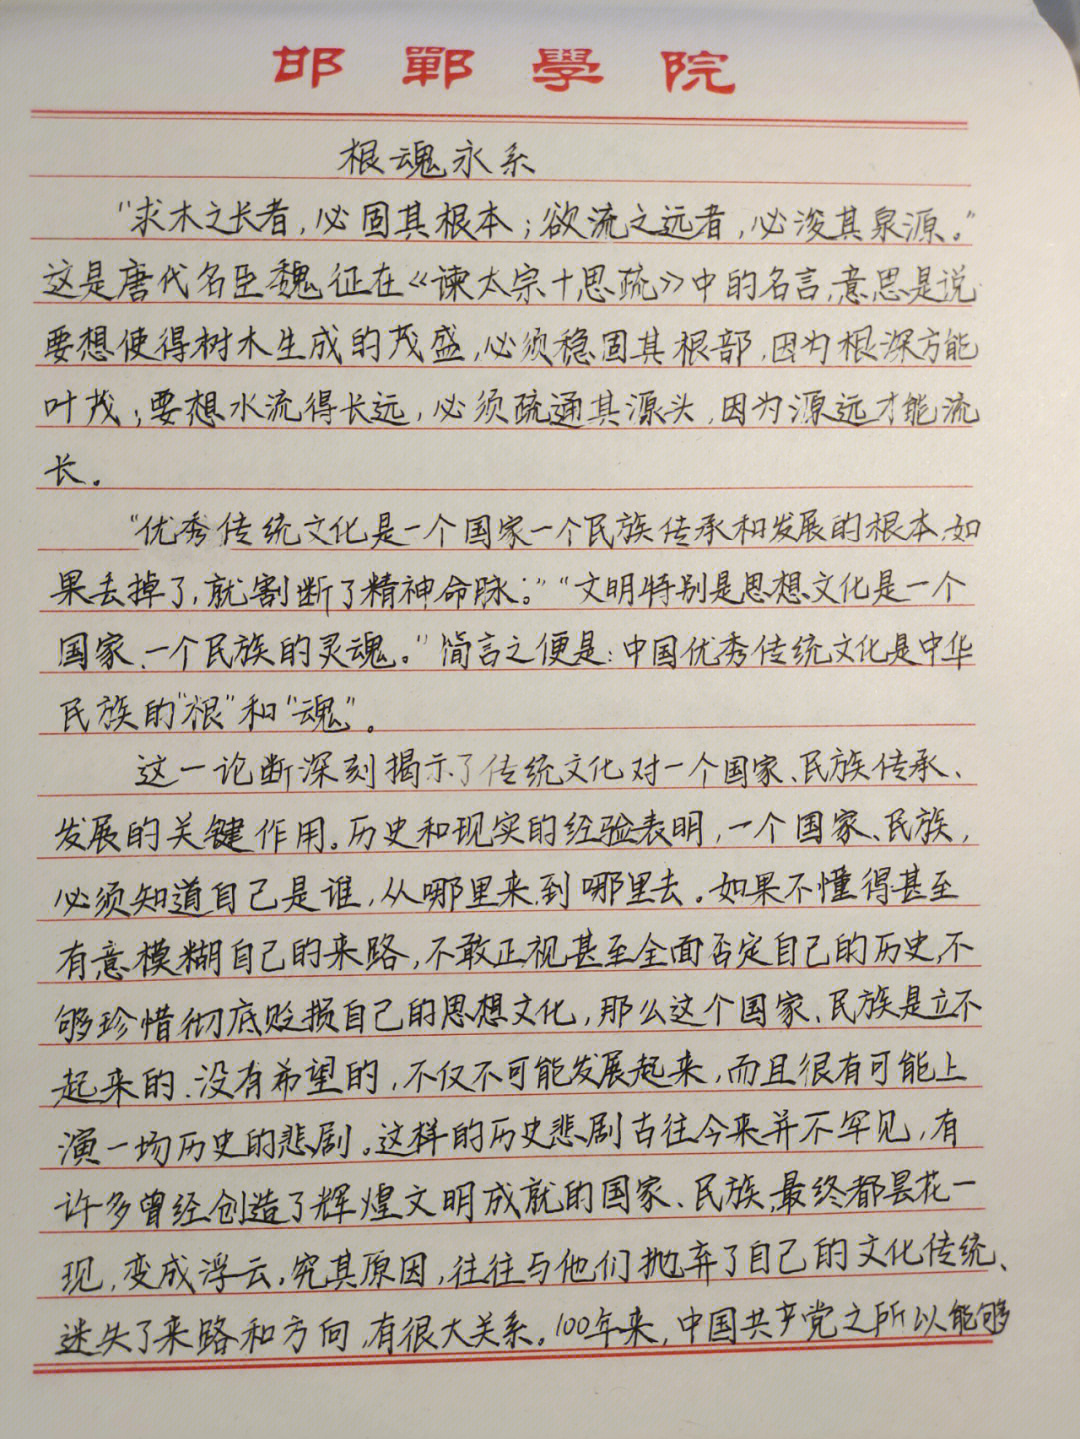 邯鄲學院
根魂永系
“求木之长者，必固其根本；欲流之远者，必浚其泉源。”
这是唐代名臣魏征在《谏太宗十思疏》中的名言，意思是说
要想使得树木生成的茂盛，必须稳固其根部，因为根深方能
叶茂；要想水流得长远，必须疏通其源头，因为源远才能流
长。
“优秀传统文化是一个国家一个民族传承和发展的根本，如
果丢掉了，就割断了精神命脉。”“文明特别是思想文化是一个
国家、一个民族的灵魂。”简言之便是：中国优秀传统文化是中华
民族的“根”和“魂”。
这一论断深刻揭示了传统文化对一个国家、民族传承、
发展的关键作用。历史和现实的经验表明，一个国家、民族，
必须知道自己是谁，从哪里来，到哪里去。如果不懂得甚至
有意模糊自己的来路，不敢正视甚至全面否定自己的历史，不
够珍惜彻底贬损自己的思想文化，那么这个国家、民族是立不
起来的、没有希望的，不仅不可能发展起来，而且很有可能上
演一场历史的悲剧。这样的历史悲剧古往今来并不罕见，有
许多曾经创造了辉煌文明成就的国家、民族，最终都昙花一
现，变成浮云，究其原因，往往与他们抛弃了自己的文化传统、
迷失了来路和方向，有很大关系。100年来，中国共产党之所以能够